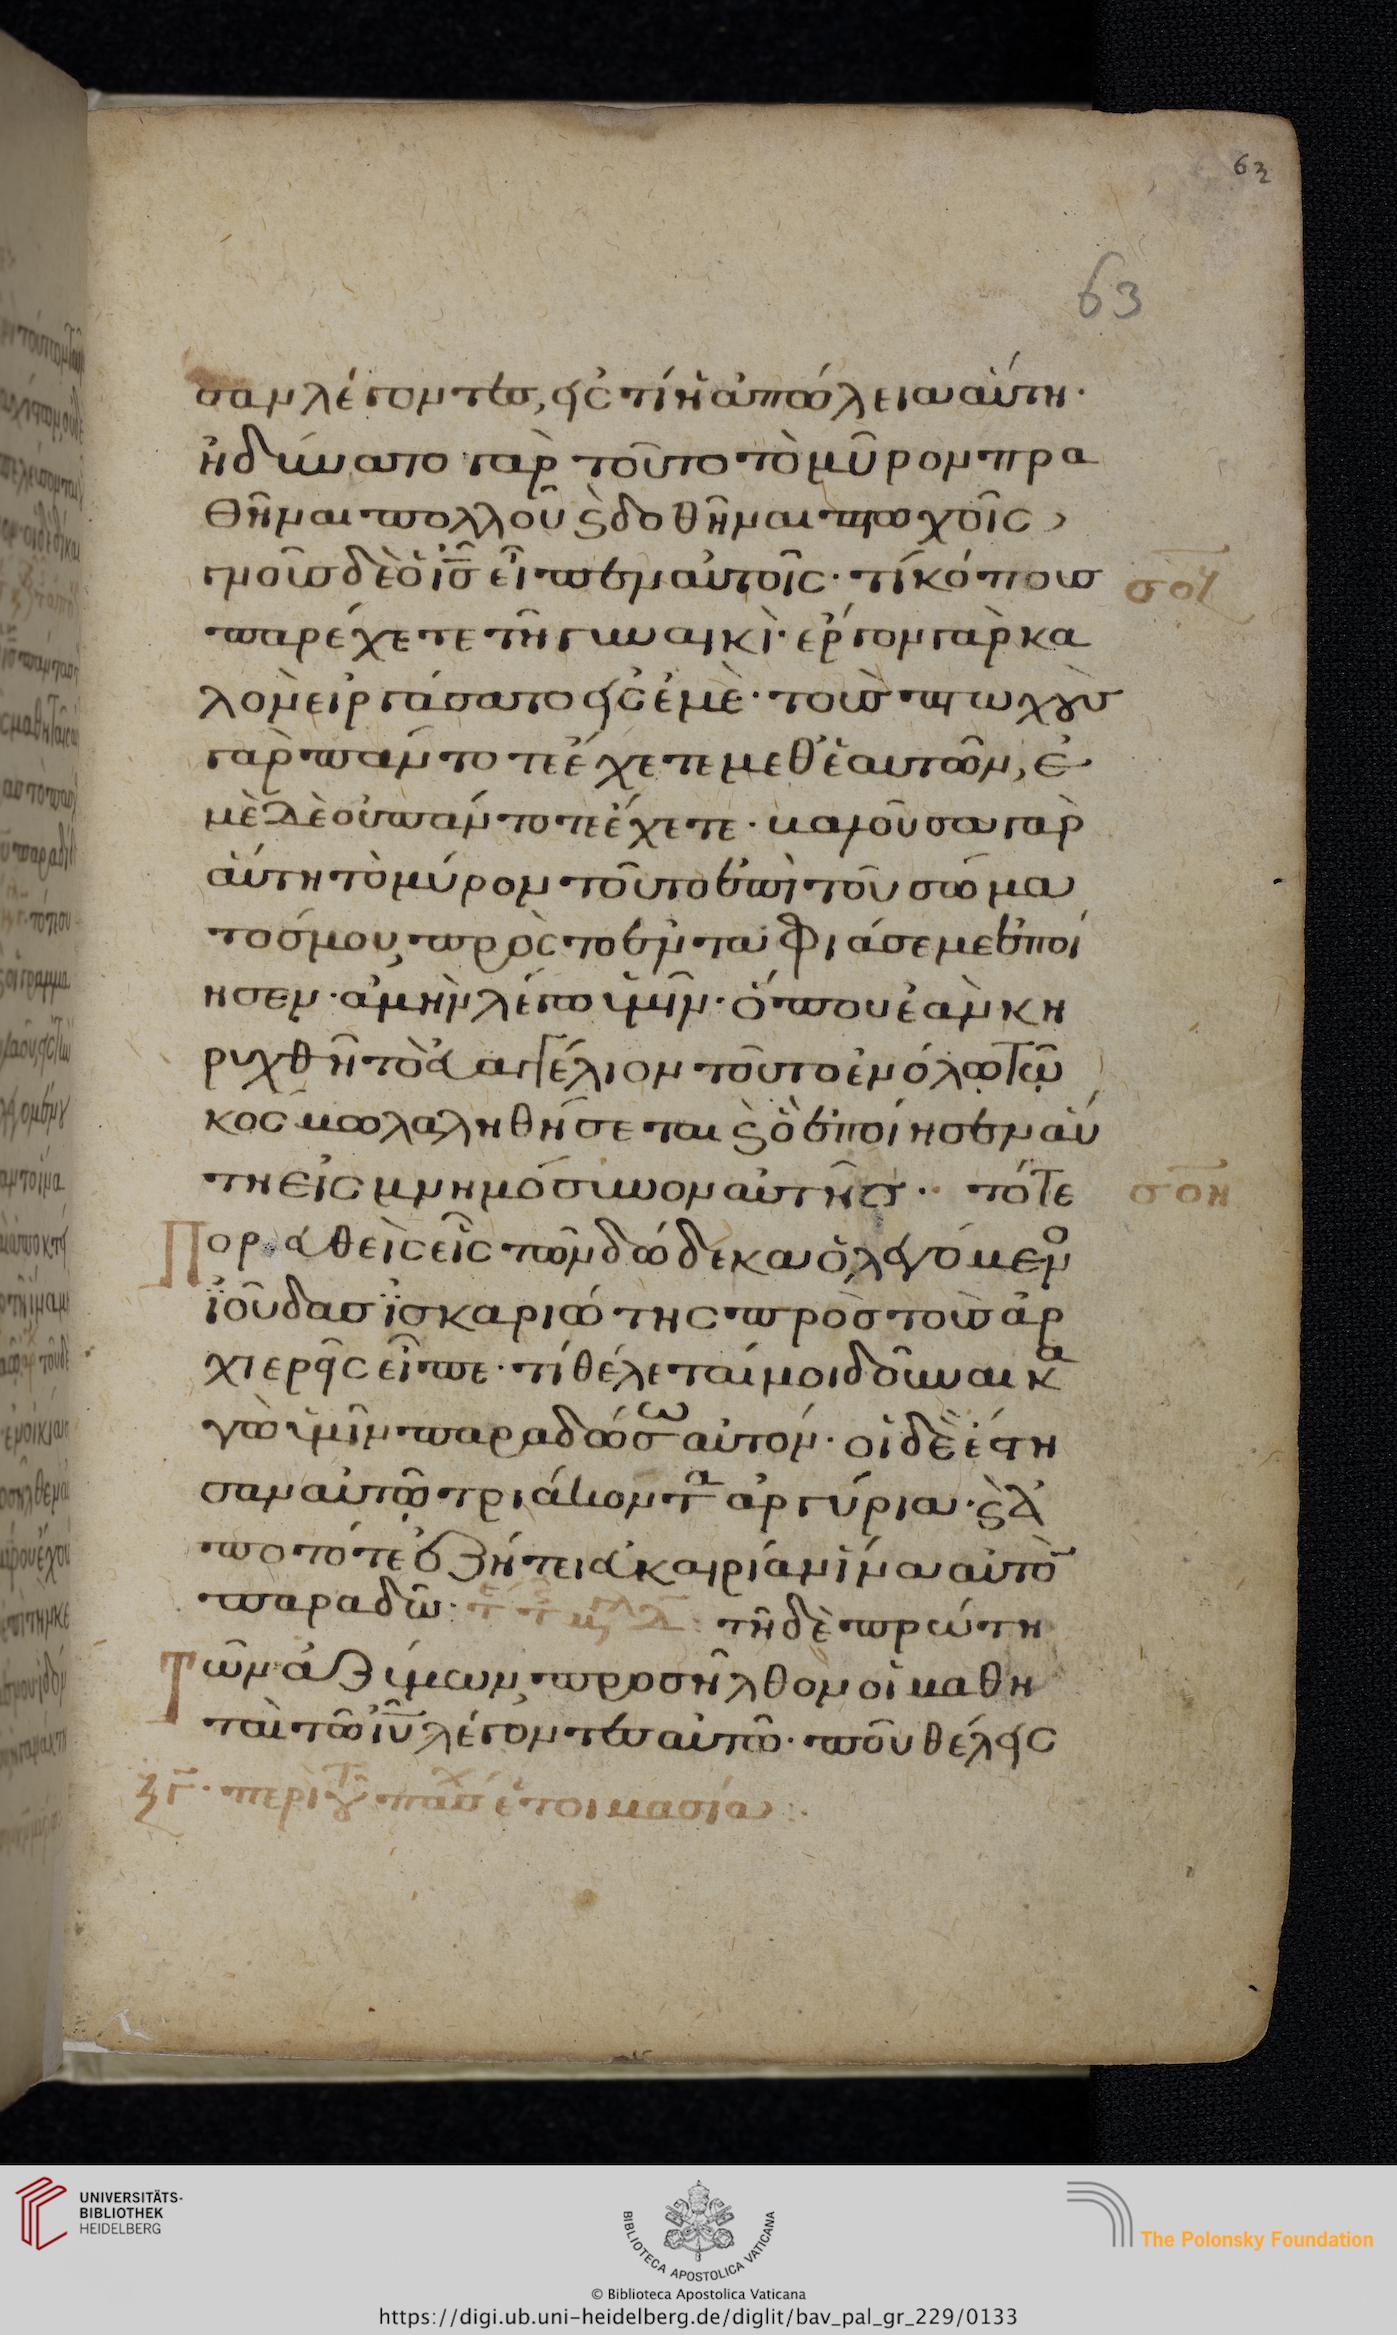 63
63
σαν λέγοντες, εἰς τί ἡ ἀπώλεια αὕτη·
ἠδύνατο γὰρ τοῦτο τὸ μῦρον πρα
θῆναι πολλοῦ ϗ δοθῆναι πτωχοῖς,
γνοὺς δὲ ὁ ἰς̅ εἶπεν αὐτοῖς· τί κόπους
παρέχετε τῇ γυναικὶ· ἔργον γὰρ κα
λὸν εἰργάσατο εἰς ἐμὲ· τοὺς πτωχοὺς
γὰρ πάντοτε ἔχετε μεθ' ἑαυτῶν, ἐ
μὲ δὲ οὐ πάντοτε ἔχετε· βαλοῦσα γὰρ
αὕτη τὸ μύρον τοῦτο ἐπὶ τοῦ σώμα
τός μου, πρὸς τὸ ἐνταφιάσε με ἐποί
ησεν· ἀμὴν λέγω ὑμῖν· ὅπου ἐὰν κη
ρυχθῇ τὸ εὐαγγέλιον τοῦτο ἐν ὅλῳ τῷ
κόσμω λαληθήσεται ϗ ὃ ἐποίησεν αὕ
τη εἰς μνημόσυνον αὐτῆς· τότε
Πορευθεὶς εἷς τῶν δώδεκα ὁ λεγόμενο
ἰούδας ἰσκαριώτης πρὸς τοὺς ἀρ
χιερεῖς εἶπε· τί θέλεταί μοι δοῦναι κα
γὼ ὑμῖν παραδώσω αὐτόν· οἱ δὲ ἔστη
σαν αὐτῷ τριάκοντα ἀργύρια· ϗ ἀ
πὸ τότε ἐζήτει εὐκαιρίαν ἵνα αὐτὸ
παραδῶ· τῇ δὲ πρώτη
Τῶν ἀζύμων προσῆλθον οἱ μαθη
ταὶ τῶ ἰῦ λέγοντες αὐτῶ· ποῦ θέλεις
ξγ· περὶ τοῦ πάσχ ἑτοιμασία
σοζ
σοη
UNIVERSITÄTS-
BIBLIOTHEK
HEIDELBERG
BIBLIOTECA APOSTOLICA VATICANA
© Biblioteca Apostolica Vaticana
https://digi.ub.uni-heidelberg.de/diglit/bav_pal_gr_229/0133
The Polonsky Foundation